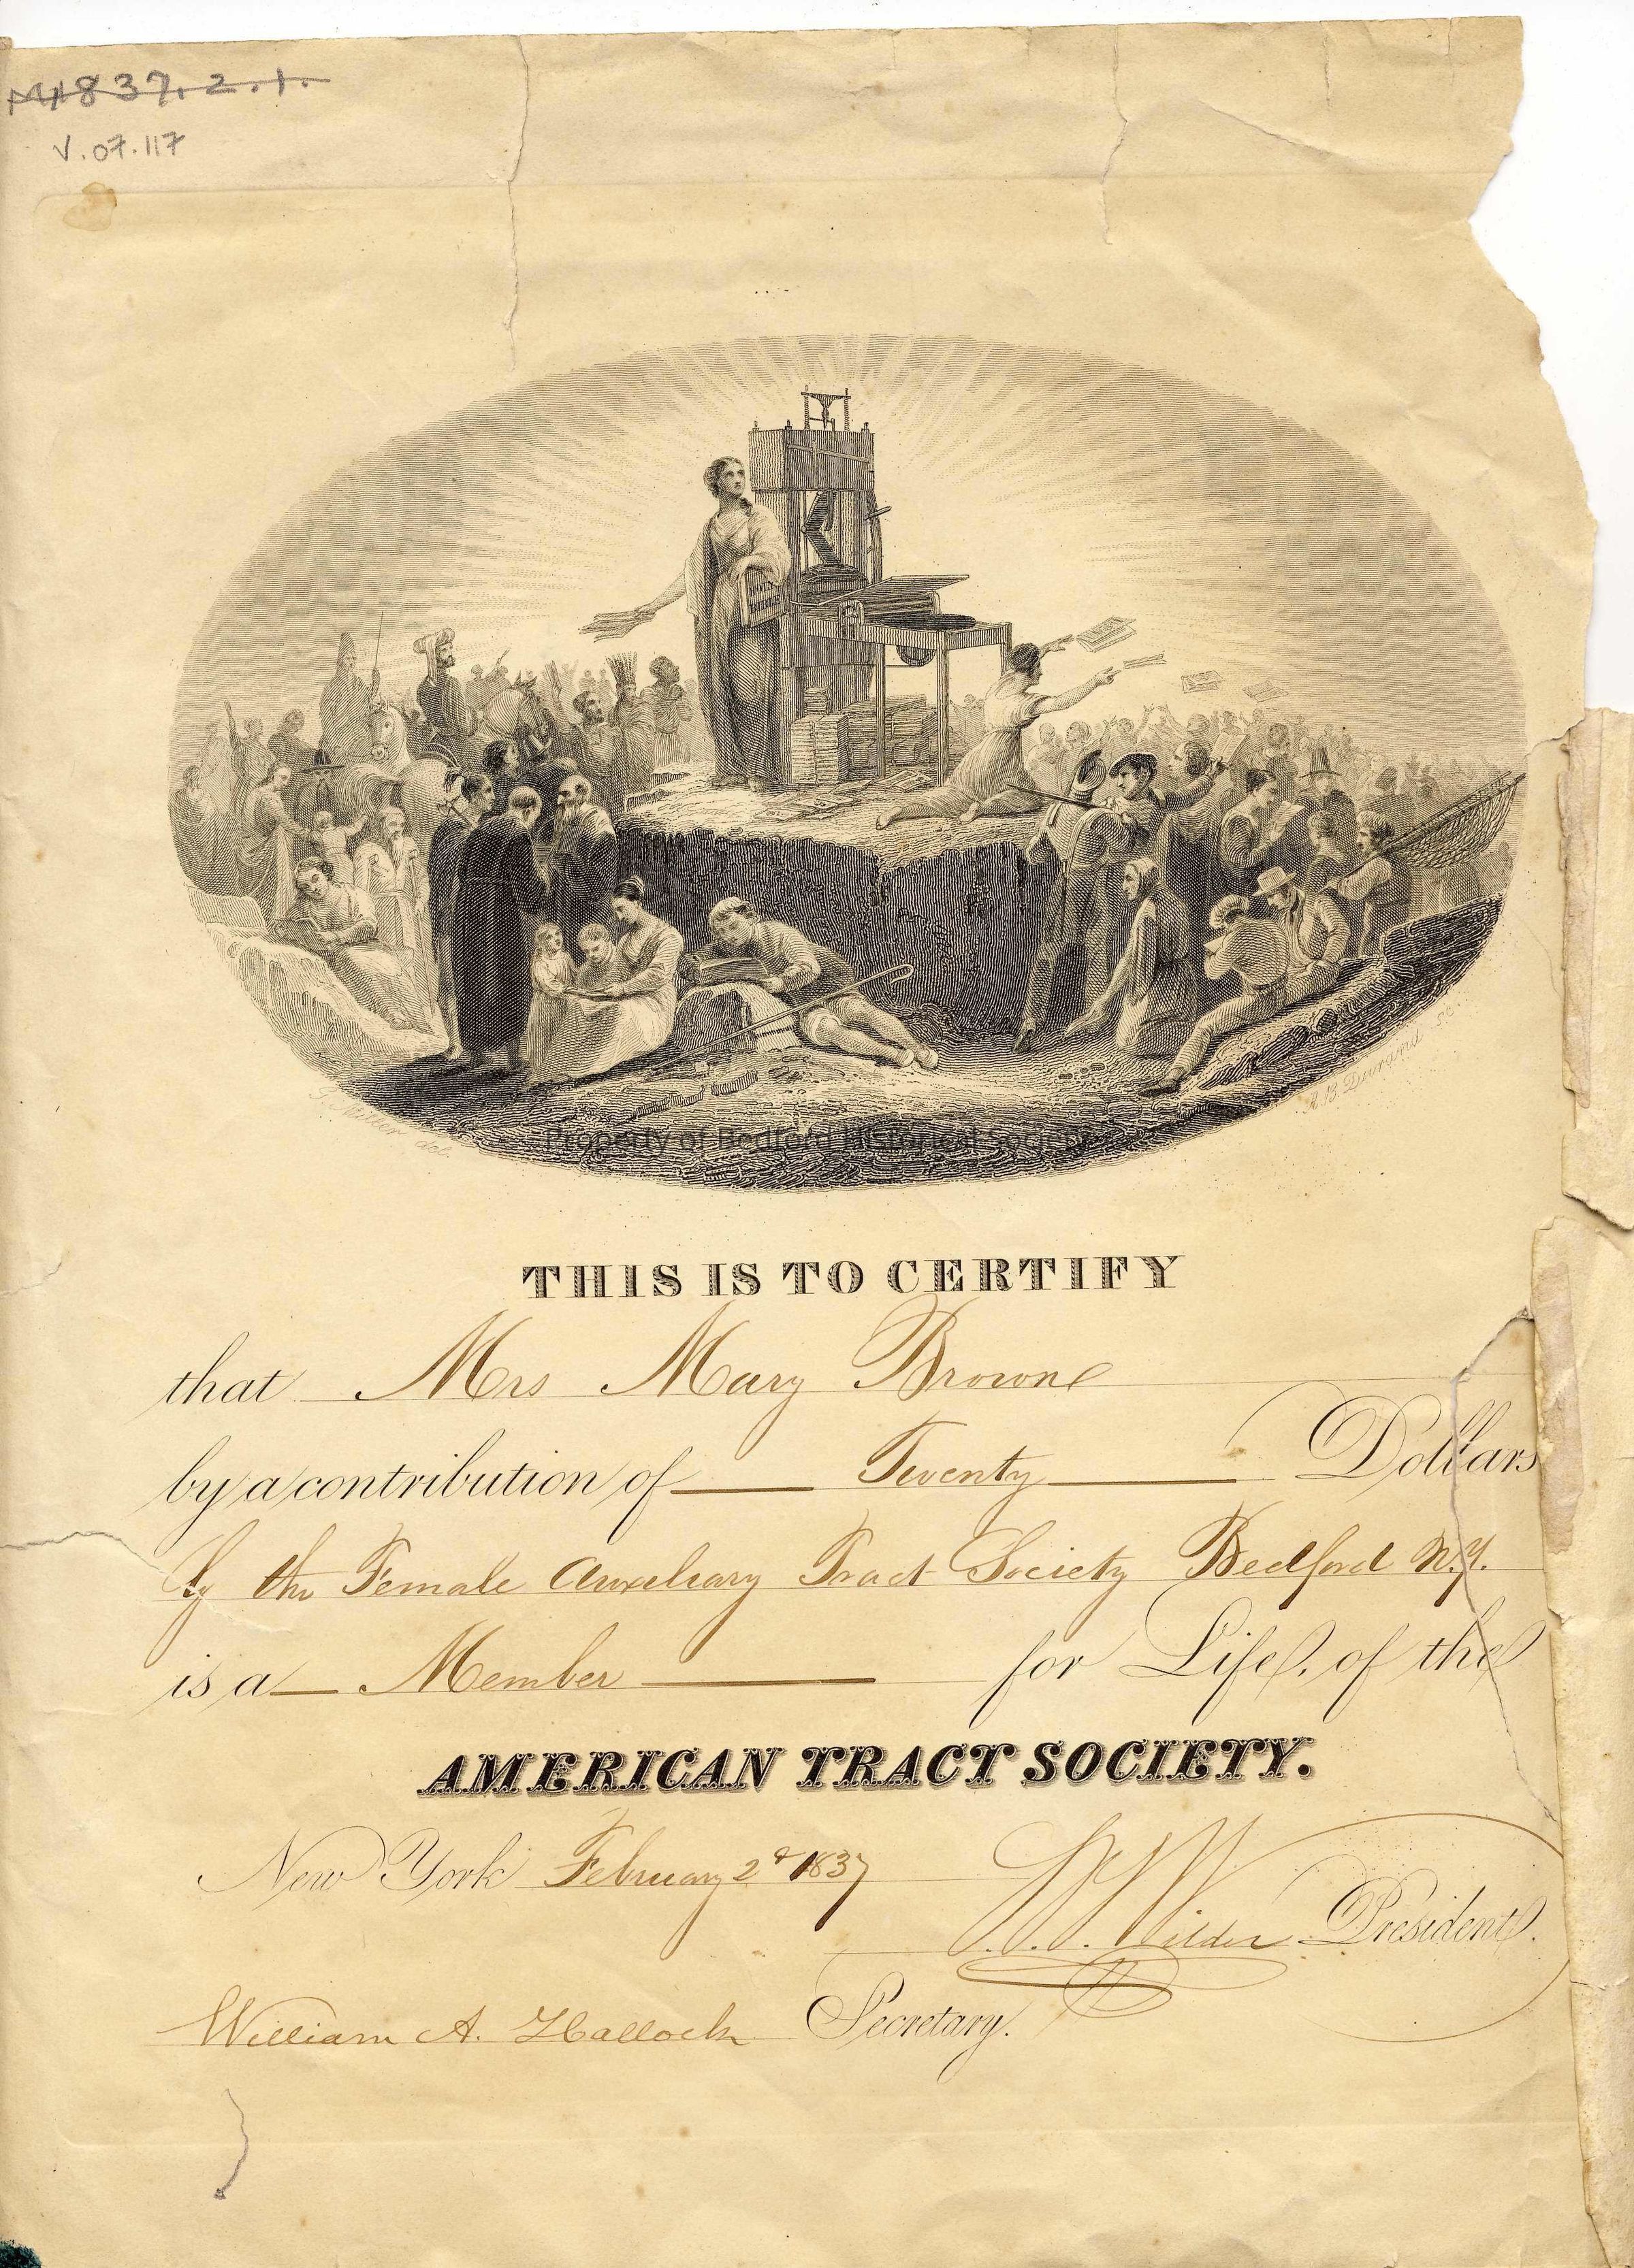 M1837.2.1.
V.07.117
HOLY
BIBLE
G. Miller del.
A.B. Durand sc.
Property of Bedford Historical Society
THIS IS TO CERTIFY
that Mrs Mary Browne
by a contribution of Twenty Dollars
by the Female Auxiliary Tract Society Bedford N.Y.
is a Member for Life, of the
AMERICAN TRACT SOCIETY.
New York February 2d 1837
S. V. S. Wilder President.
William A. Hallock Secretary.